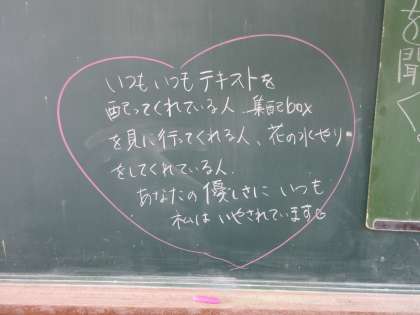 いつもいつもテキストを
配ってくれている人 集配box
を見に行ってくれる人、花の水やり
をしてくれている人.
あなたの優しさに いつも
私は いやされています
を聞く